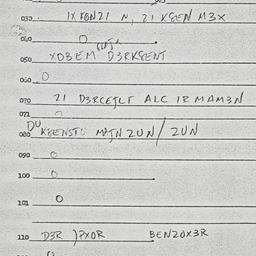 030. IX KONZI N, ZI KSEN M3X
040 O
050 XOBEM D3RKSENT
060 O
070 ZI D3RCEJLT ALC IR MAM3N
071
080 DU KEENSTU MAJN ZUN / ZUN
090 O
100 O
101 O
110 D3R )PXOR BENZOX3R